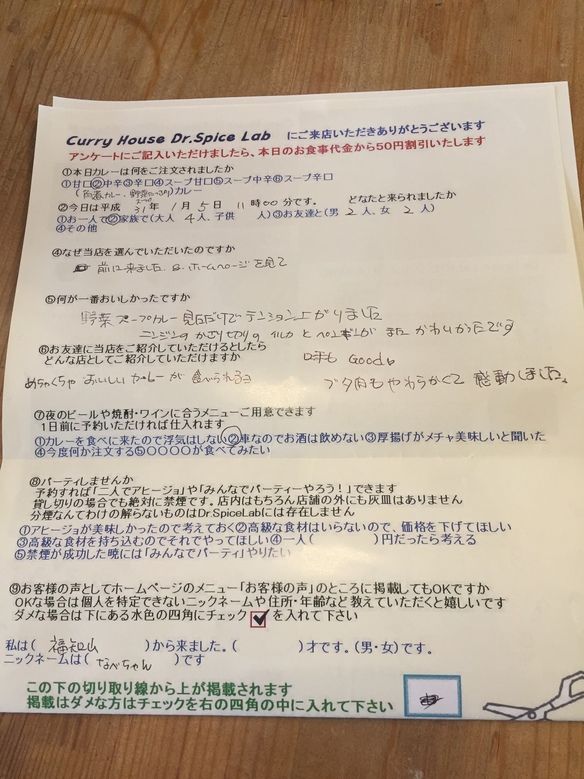 Curry House Dr.Spice Lab にご来店いただきありがとうございます
アンケートにご記入いただけましたら、本日のお食事代金から50円割引いたします
①本日カレーは何をご注文されましたか
①甘口②中辛③辛口④スープ甘口⑤スープ中辛⑥スープ辛口
カレー、野菜 )カレー
②今日は平成 31年 1月 5日 11時00分です。 どなたと来られましたか
①お一人で②家族で(大人 4人、子供 人)③お友達と(男 2人、女 2人)
④その他
④なぜ当店を選んでいただいたのですか
前に来ました。 ホームページを見て
⑤何が一番おいしかったですか
野菜スープカレー 見ただけでテンション上がりました
ニンジンのかざり切りの イルカとペンギンが またかわいかったです
⑥お友達に当店をご紹介していただけるとしたら
どんな店としてご紹介していただけますか
味も Good。
めちゃくちゃ おいしい カレーが 食べられる
ブタ肉もやわらかくて 感動しました。
⑦夜のビールや焼酎・ワインに合うメニューご用意できます
1日前に予約いただければ仕入れます
①カレーを食べに来たので浮気はしない②車なのでお酒は飲めない③厚揚げがメチャ美味しいと聞いた
④今度何か注文する⑤〇〇〇〇が食べてみたい
⑧パーティしませんか
予約すれば「二人でアヒージョ」や「みんなでパーティーやろう!」できます
貸し切りの場合でも絶対に禁煙です。店内はもちろん店舗の外にも灰皿はありません
分煙なんてわけの解らないものはDr.SpiceLabには存在しません
①アヒージョが美味しかったので考えておく②高級な食材はいらないので、価格を下げてほしい
③高級な食材を持ち込むのでそれでやってほしい④一人( )円だったら考える
⑤禁煙が成功した暁には「みんなでパーティ」やりたい
⑨お客様の声としてホームページのメニュー「お客様の声」のところに掲載してもOKですか
OKな場合は個人を特定できないニックネームや住所・年齢など教えていただくと嬉しいです
ダメな場合は下にある水色の四角にチェック✓を入れて下さい
私は( 福知山 )から来ました。( )才です。(男・女)です。
ニックネームは( なべちゃん )です
この下の切り取り線から上が掲載されます
掲載はダメな方はチェックを右の四角の中に入れて下さい